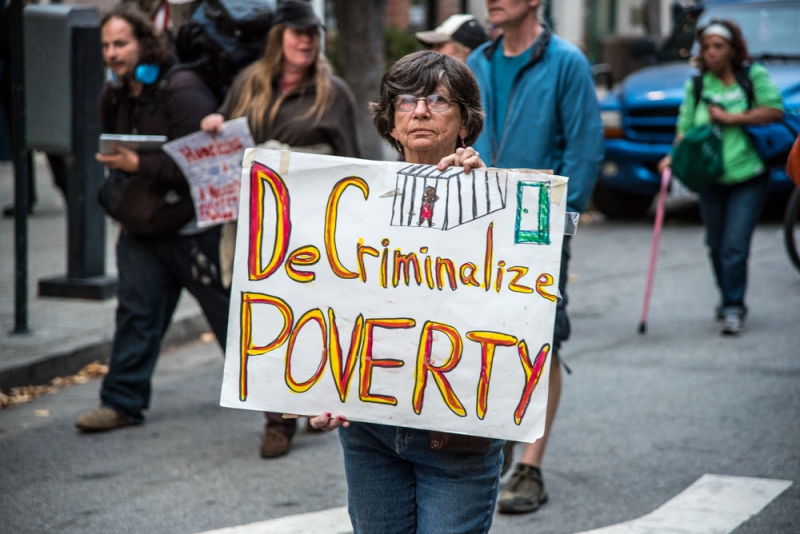 DeCriminalize
POVERTY